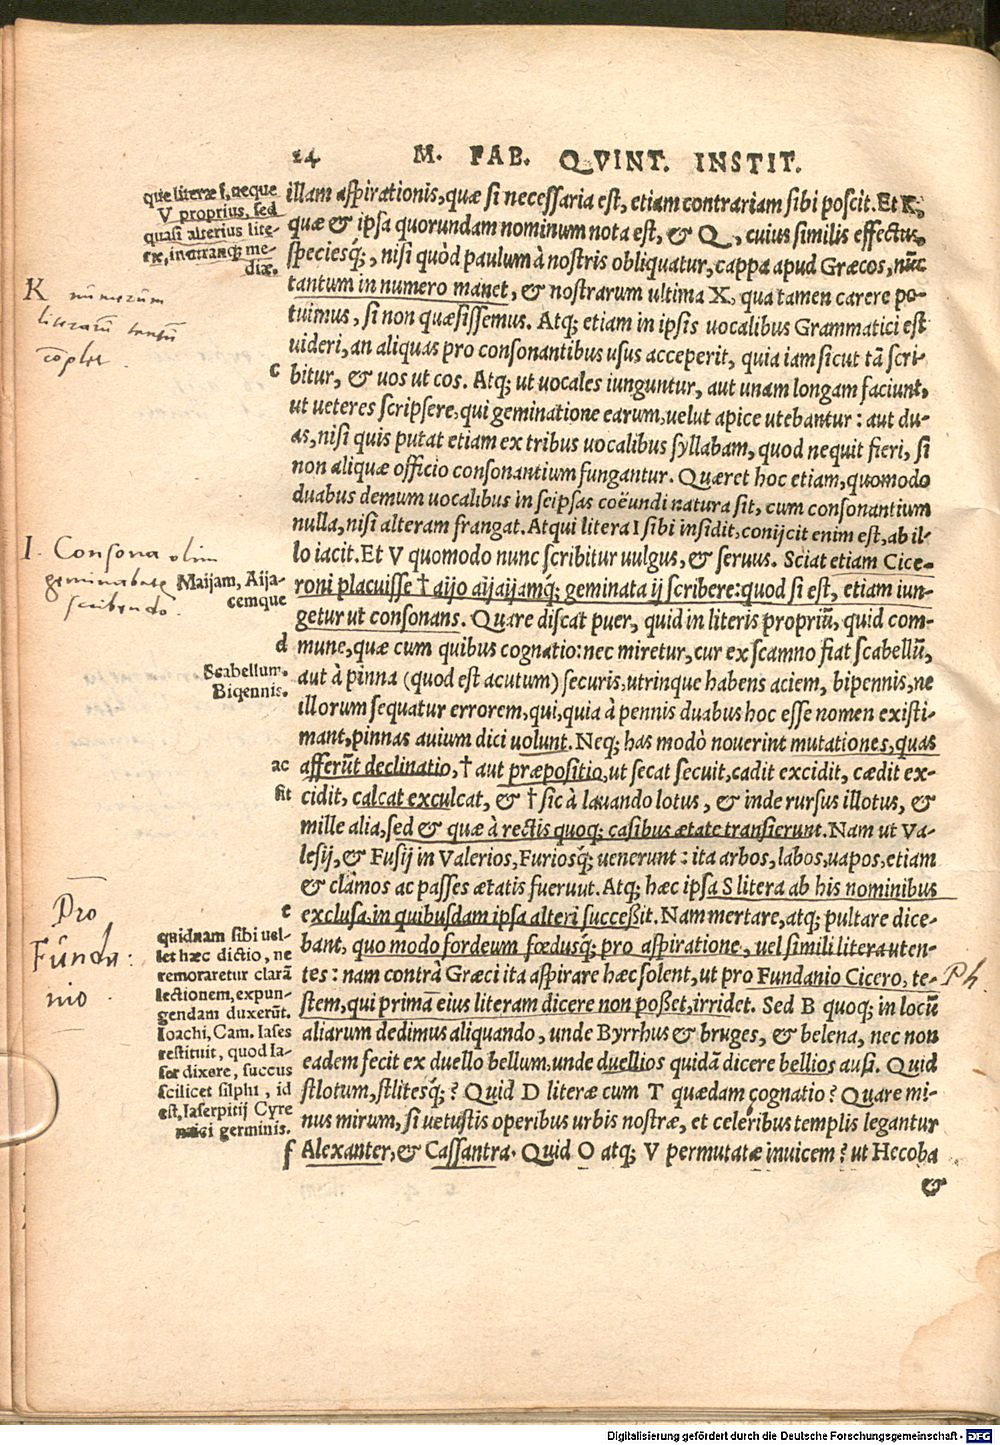 14 M. FAB. QVINT. INSTIT.
que literæ ſ, neque
V proprius, ſed
quaſi alterius lite-
ræ, in utranq; me-
diæ.
illam aſpirationis, quæ ſi neceſſaria eſt, etiam contrariam ſibi poſcit. Et K,
quæ & ipſa quorundam nominum nota eſt, & Q, cuius ſimilis effectus,
ſpecieſq́;, niſi quòd paulum à noſtris obliquatur, cappa apud Græcos, nūc
tantum in numero manet, & noſtrarum ultima X, qua tamen carere po-
tuimus, ſi non quæſiſſemus. Atq; etiam in ipſis uocalibus Grammatici eſt
uideri, an aliquas pro conſonantibus uſus acceperit, quia iam ſicut tā ſcri-
bitur, & uos ut cos. Atq; ut uocales iunguntur, aut unam longam faciunt,
ut ueteres ſcripſere, qui geminatione earum, uelut apice utebantur: aut du-
as, niſi quis putat etiam ex tribus uocalibus ſyllabam, quod nequit fieri, ſi
non aliquæ officio conſonantium fungantur. Quæret hoc etiam, quomodo
duabus demum uocalibus in ſeipſas coëundi natura ſit, cum conſonantium
nulla, niſi alteram frangat. Atqui litera I ſibi inſidit, conijcit enim eſt, ab il-
lo iacit. Et V quomodo nunc ſcribitur uulgus, & ſeruus. Sciat etiam Cice-
roni placuiſſe † aijo aijaijamq́; geminata ij ſcribere: quod ſi eſt, etiam iun-
getur ut conſonans. Quare diſcat puer, quid in literis propriū, quid com-
mune, quæ cum quibus cognatio: nec miretur, cur ex ſcamno fiat ſcabellū,
aut à pinna (quod eſt acutum) ſecuris, utrinque habens aciem, bipennis, ne
illorum ſequatur errorem, qui, quia à pennis duabus hoc eſſe nomen exiſti-
mant, pinnas auium dici uolunt. Neq; has modò nouerint mutationes, quas
afferūt declinatio, † aut præpoſitio, ut ſecat ſecuit, cadit excidit, cædit ex-
cidit, calcat exculcat, & † ſic à lauando lotus, & inde rurſus illotus, &
mille alia, ſed & quæ à rectis quoq; caſibus ætate tranſierunt. Nam ut Va-
leſij, & Fuſij in Valerios, Furioſq́; uenerunt: ita arbos, labos, uapos, etiam
& clāmos ac paſſes ætatis fueruut. Atq; hæc ipſa S litera ab his nominibus
excluſa, in quibuſdam ipſa alteri ſucceßit. Nam mertare, atq; pultare dice-
bant, quo modo fordeum fœduſq́; pro aſpiratione, uel ſimili litera uten-
tes: nam contrà Græci ita aſpirare hæc ſolent, ut pro Fundanio Cicero, te-
ſtem, qui primā eius literam dicere non poßet, irridet. Sed B quoq; in locū
aliarum dedimus aliquando, unde Byrrhus & bruges, & belena, nec non
eadem fecit ex duello bellum, unde duellios quidā dicere bellios auſi. Quid
ſtlotum, ſtliteſq́;? Quid D literæ cum T quædam cognatio? Quare mi-
nus mirum, ſi uetuſtis operibus urbis noſtræ, et celeribus templis legantur
Alexanter, & Caſſantra. Quid O atq; V permutatæ inuicem? ut Hecoba
&
K numerum
literarū tantū
cōplet.
c
I. Conſona olim
geminabatur
ſcribendo.
Maijam, Aija-
cemque
d
Scabellum.
Bigennis.
ac
ſit
Pro
Funda:
nio.
Ph.
e
quidnam ſibi uel-
let hæc dictio, ne
remoraretur clarā
lectionem, expun-
gendam duxerūt.
Ioachi, Cam. Iaſes
reſtituit, quod Ia-
ſer dixere, ſuccus
ſcilicet ſilphi, id
eſt, Iaſerpitij Cyre
naici germinis.
f